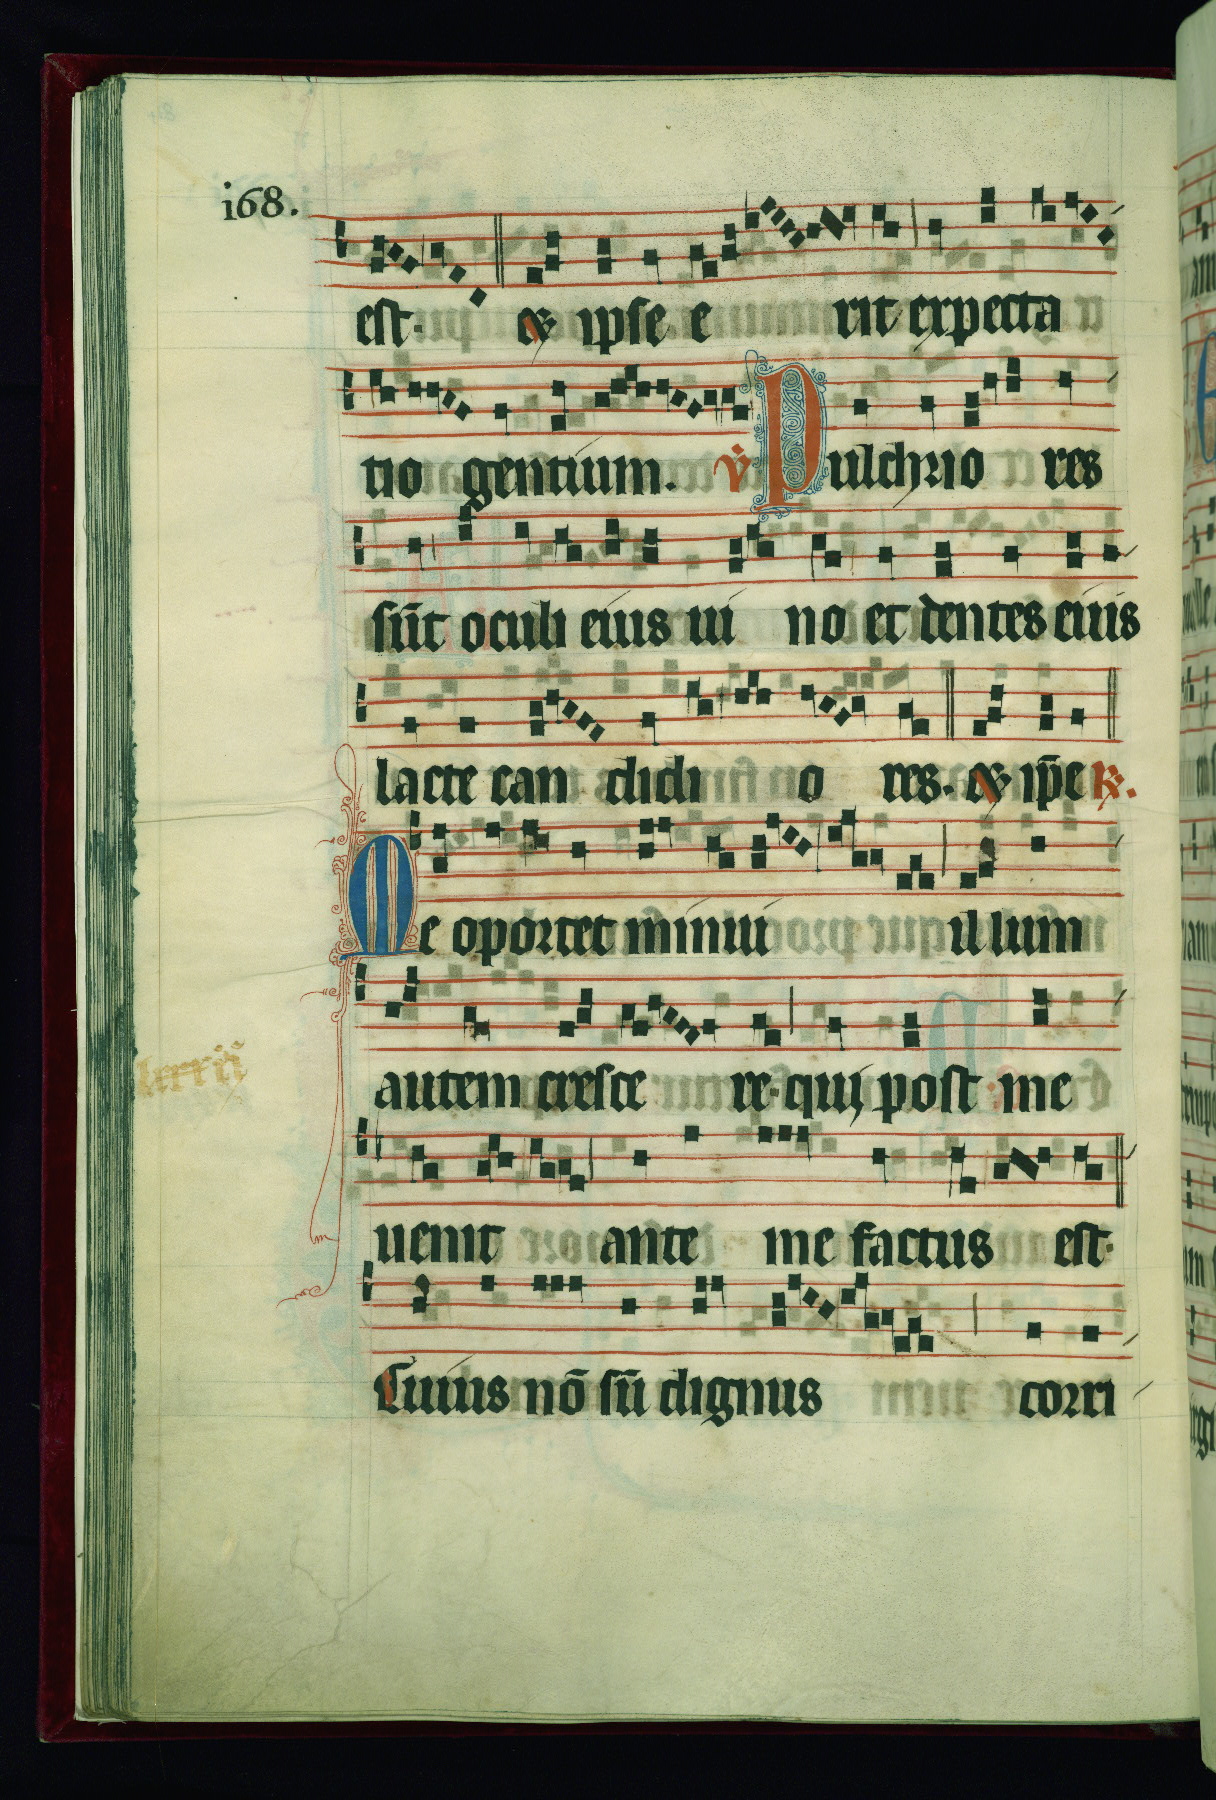 i68.
est. & ipse e rit expecta
tio gentium. v̇ Pulchrio res
sūt oculi eius ui no et dentes eius
lacte can didi o res. & ip̄e ℞.
Me oportet minui illum
autem cresce re. qui post me
lxxxii
uenit ante me factus est.
Cuius nō sū dignus corri